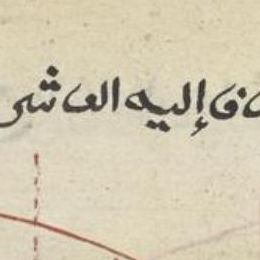 إليه العاشر